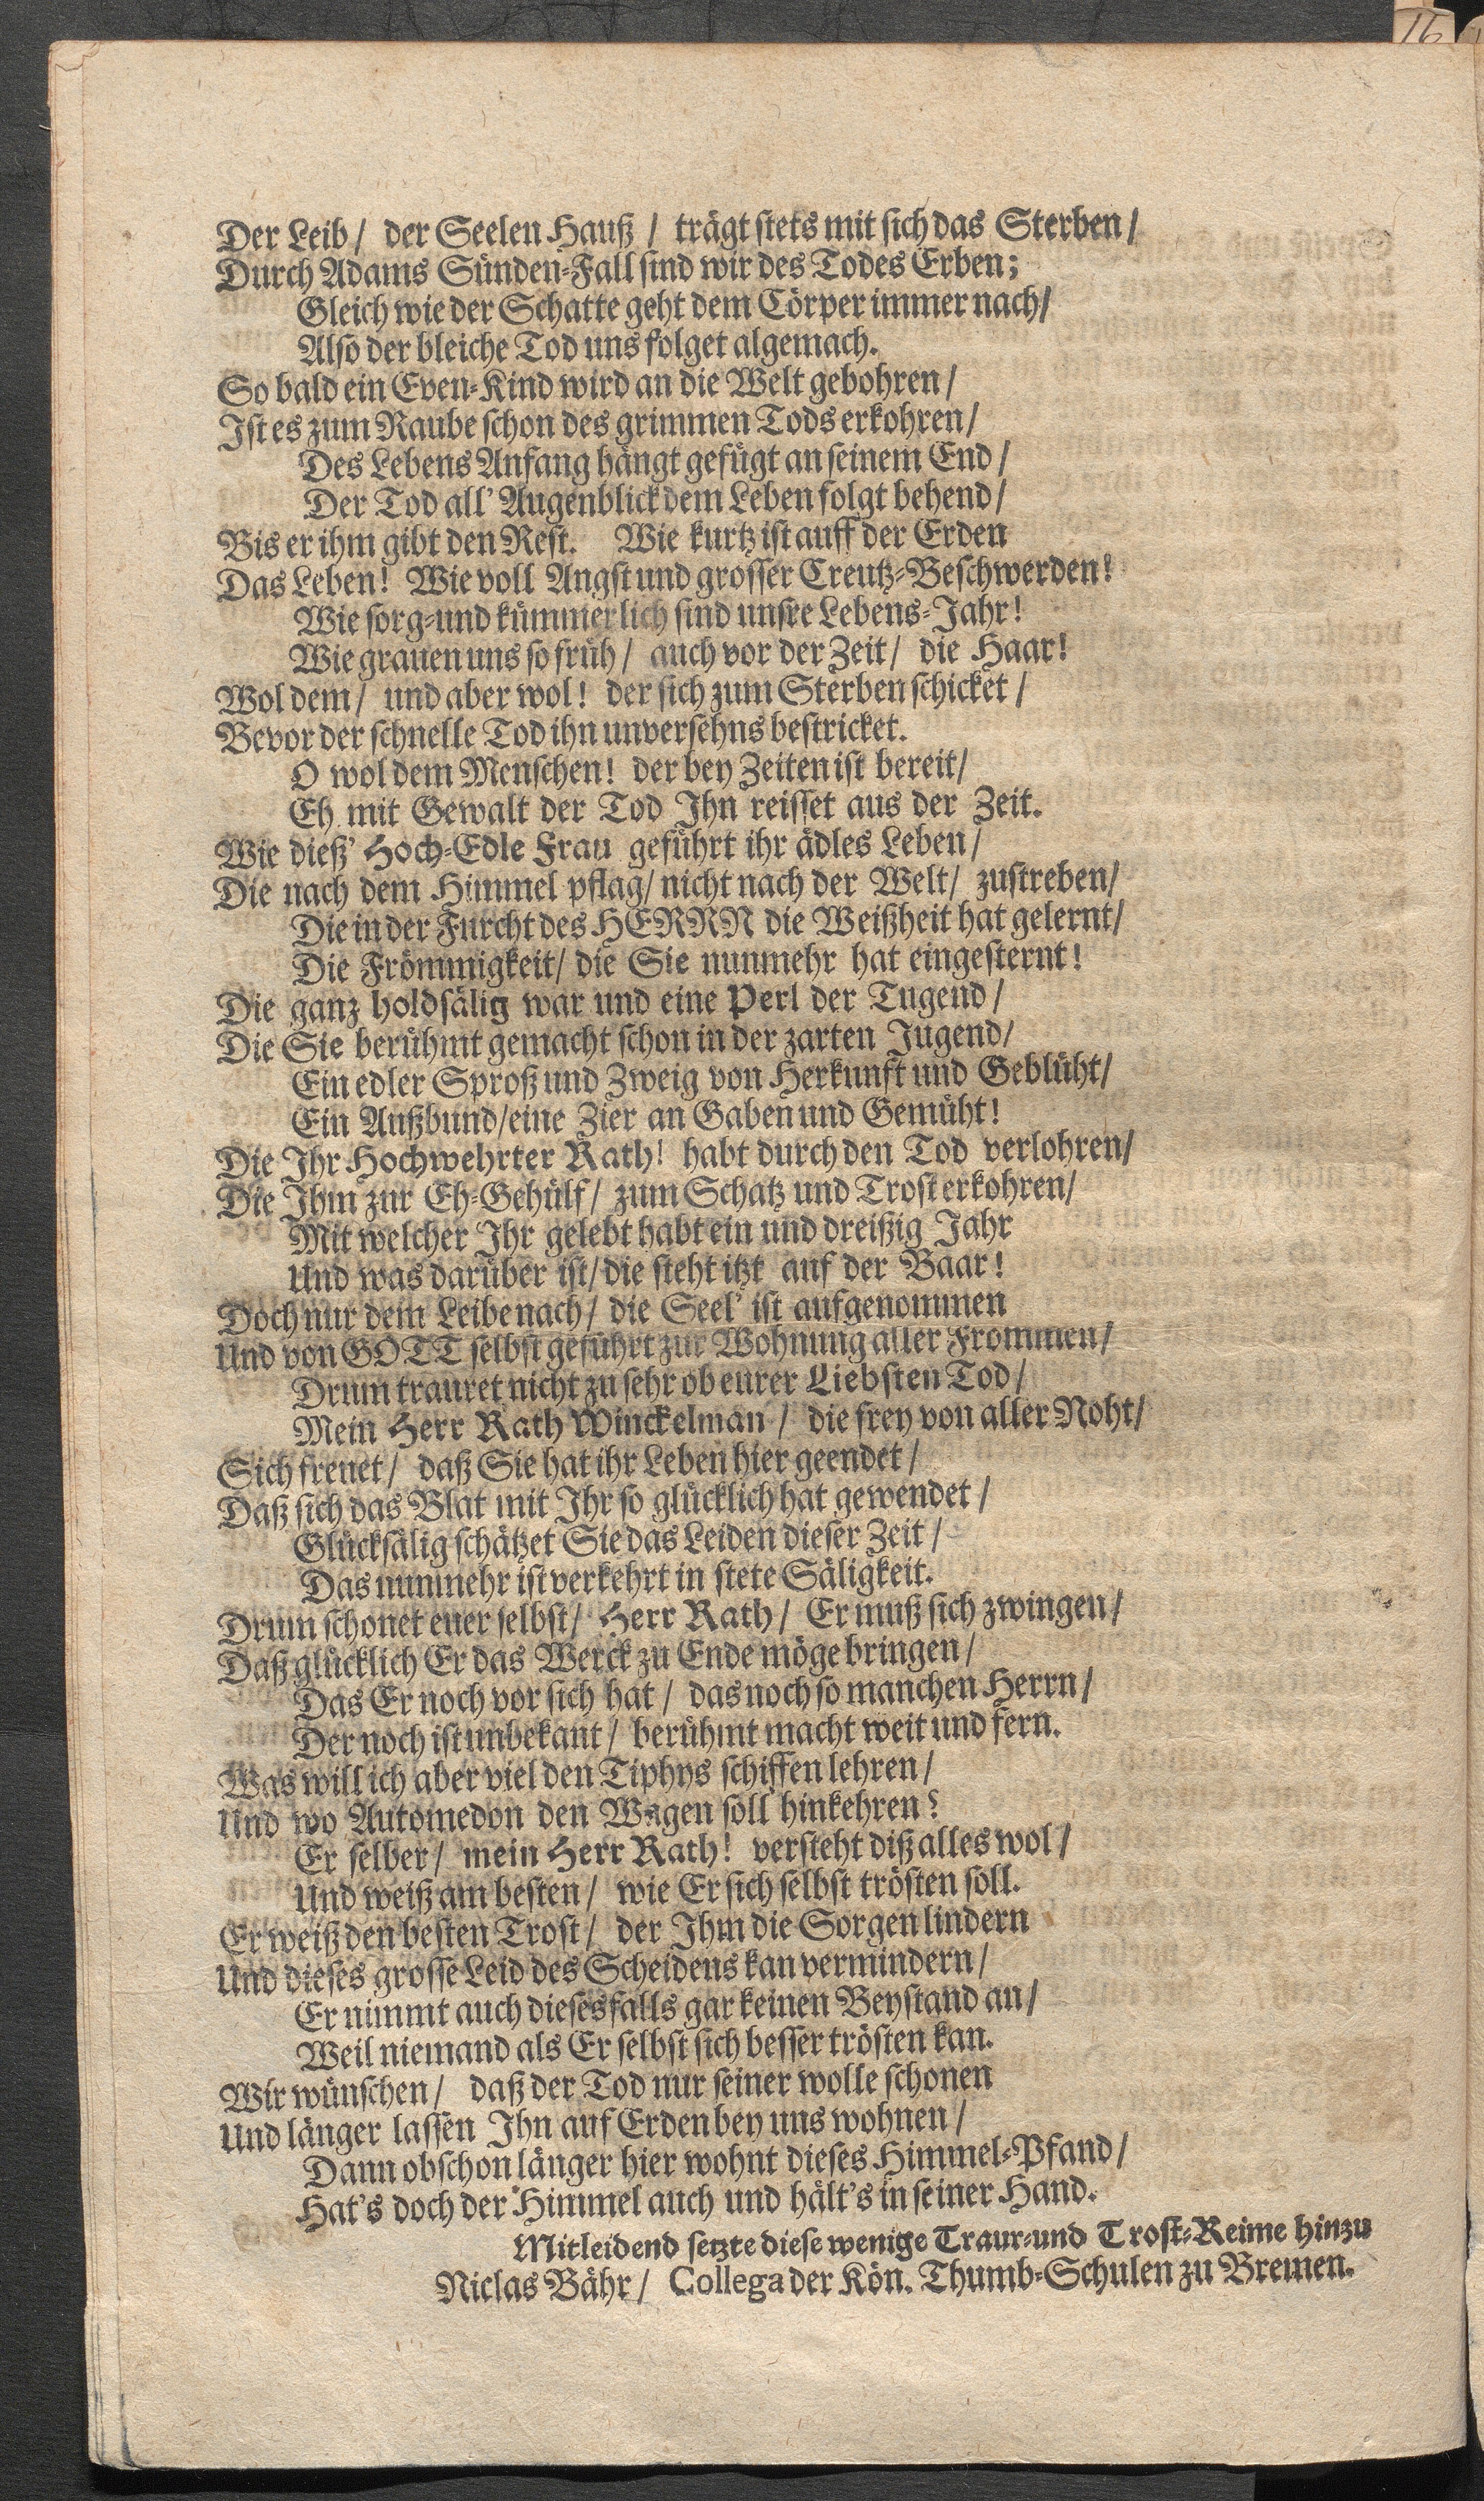 16
Der Leib / der Seelen Hauß / trägt stets mit sich das Sterben /
Durch Adams Sünden-Fall sind wir des Todes Erben;
Gleich wie der Schatte geht dem Cörper immer nach /
Also der bleiche Tod uns folget algemach.
So bald ein Even-Kind wird an die Welt gebohren /
Ist es zum Raube schon des grimmen Tods erkohren /
Des Lebens Anfang hängt gefügt an seinem End /
Der Tod all' Augenblick dem Leben folgt behend /
Bis er ihm gibt den Rest. Wie kurtz ist auff der Erden
Das Leben! Wie voll Angst und grosser Creutz-Beschwerden!
Wie sorg- und kümmerlich sind unsre Lebens-Jahr!
Wie grauen uns so früh / auch vor der Zeit / die Haar!
Wol dem / und aber wol! der sich zum Sterben schicket /
Bevor der schnelle Tod ihn unversehns bestricket.
O wol dem Menschen! der bey Zeiten ist bereit /
Eh mit Gewalt der Tod Ihn reisset aus der Zeit.
Wie dieß' Hoch-Edle Frau geführt ihr ädles Leben /
Die nach dem Himmel pflag / nicht nach der Welt / zustreben /
Die in der Furcht des HERRN die Weißheit hat gelernt /
Die Frömmigkeit / die Sie nunmehr hat eingesternt!
Die ganz holdsälig war und eine Perl der Tugend /
Die Sie berühmt gemacht schon in der zarten Jugend /
Ein edler Sproß und Zweig von Herkunft und Geblüht /
Ein Außbund / eine Zier an Gaben und Gemüht!
Die Ihr Hochwehrter Rath! habt durch den Tod verlohren /
Die Ihm zur Eh-Gehülf / zum Schatz und Trost erkohren /
Mit welcher Ihr gelebt habt ein und dreißig Jahr
Und was darüber ist / die steht itzt auf der Baar!
Doch nur dem Leibe nach / die Seel' ist aufgenommen
Und von GOTT selbst geführt zur Wohnung aller Frommen /
Drum trauret nicht zu sehr ob eurer Liebsten Tod /
Mein Herr Rath Winckelman / die frey von aller Noht /
Sich freuet / daß Sie hat ihr Leben hier geendet /
Daß sich das Blat mit Ihr so glücklich hat gewendet /
Glücksälig schätzet Sie das Leiden dieser Zeit /
Das nunmehr ist verkehrt in stete Säligkeit.
Drum schonet euer selbst / Herr Rath / Er muß sich zwingen /
Daß glücklich Er das Werck zu Ende möge bringen /
Das Er noch vor sich hat / das noch so manchen Herrn /
Der noch ist unbekant / berühmt macht weit und fern.
Was will ich aber viel den Tiphys schiffen lehren /
Und wo Automedon den Wagen soll hinkehren?
Er selber / mein Herr Rath! versteht diß alles wol /
Und weiß am besten / wie Er sich selbst trösten soll.
Er weiß den besten Trost / der Ihm die Sorgen lindern
Und dieses grosse Leid des Scheidens kan vermindern /
Er nimmt auch diesesfalls gar keinen Beystand an /
Weil niemand als Er selbst sich besser trösten kan.
Wir wünschen / daß der Tod nur seiner wolle schonen
Und länger lassen Ihn auf Erden bey uns wohnen /
Dann obschon länger hier wohnt dieses Himmel-Pfand /
Hat's doch der Himmel auch und hält's in seiner Hand.
Mitleidend setzte diese wenige Traur- und Trost-Reime hinzu
Niclas Bähr / Collega der Kön. Thumb-Schulen zu Bremen.